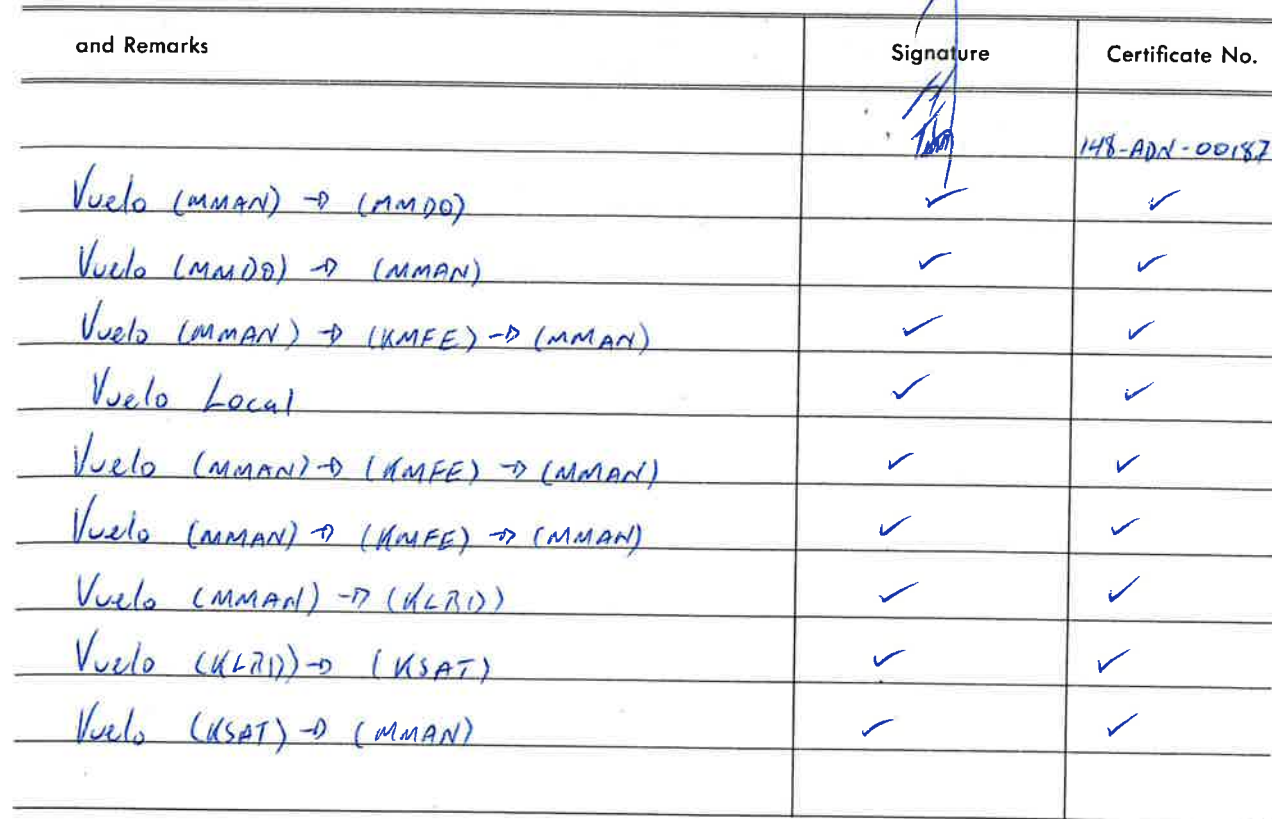 and Remarks Signature Certificate No.
148-ADN-00187
Vuelo (MMAN) → (MMDO) ✓ ✓
Vuelo (MMDO) → (MMAN) ✓ ✓
Vuelo (MMAN) → (KMFE) → (MMAN) ✓ ✓
Vuelo Local ✓ ✓
Vuelo (MMAN) → (KMFE) → (MMAN) ✓ ✓
Vuelo (MMAN) → (KMFE) → (MMAN) ✓ ✓
Vuelo (MMAN) → (KLRD) ✓ ✓
Vuelo (KLRD) → (KSAT) ✓ ✓
Vuelo (KSAT) → (MMAN) ✓ ✓